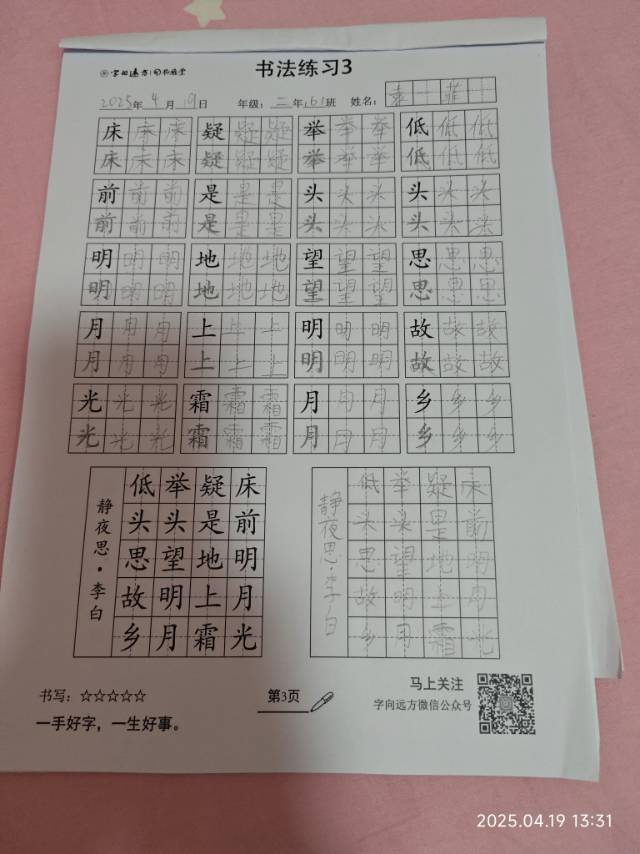 字向远方|向教练堂
书法练习3
2025年4月19日 年级:二年(6)班 姓名:袁 菲
床床床 疑疑疑 举举举 低低低
床床床 疑疑疑 举举举 低低低
前前前 是是是 头头头 头头头
前前前 是是是 头头头 头头头
明明明 地地地 望望望 思思思
明明明 地地地 望望望 思思思
月月月 上上上 明明明 故故故
月月月 上上上 明明明 故故故
光光光 霜霜霜 月月月 乡乡乡
光光光 霜霜霜 月月月 乡乡乡
床前明月光
疑是地上霜
举头望明月
低头思故乡
静夜思·李白
床前明月光
疑是地上霜
举头望明月
低头思故乡
静夜思·李白
书写:☆☆☆☆☆
一手好字,一生好事。
第3页
马上关注
字向远方微信公众号
2025.04.19 13:31